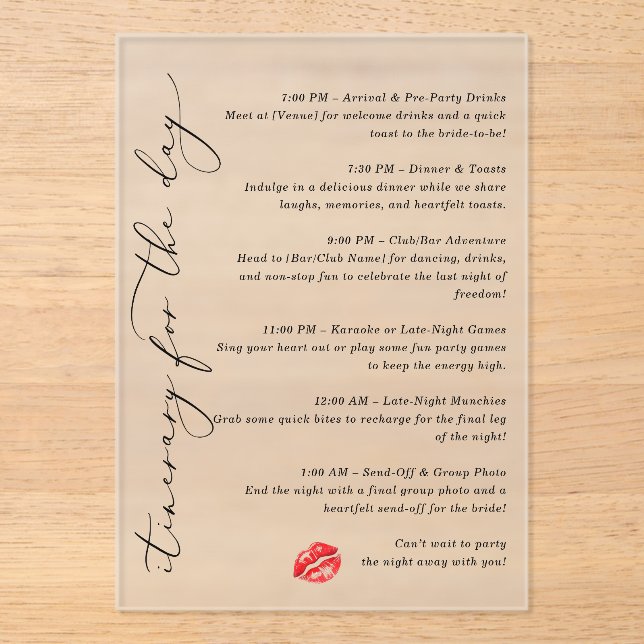 itinerary for the day
7:00 PM – Arrival & Pre-Party Drinks
Meet at [Venue] for welcome drinks and a quick
toast to the bride-to-be!
7:30 PM – Dinner & Toasts
Indulge in a delicious dinner while we share
laughs, memories, and heartfelt toasts.
9:00 PM – Club/Bar Adventure
Head to [Bar/Club Name] for dancing, drinks,
and non-stop fun to celebrate the last night of
freedom!
11:00 PM – Karaoke or Late-Night Games
Sing your heart out or play some fun party games
to keep the energy high.
12:00 AM – Late-Night Munchies
Grab some quick bites to recharge for the final leg
of the night!
1:00 AM – Send-Off & Group Photo
End the night with a final group photo and a
heartfelt send-off for the bride!
Can't wait to party
the night away with you!